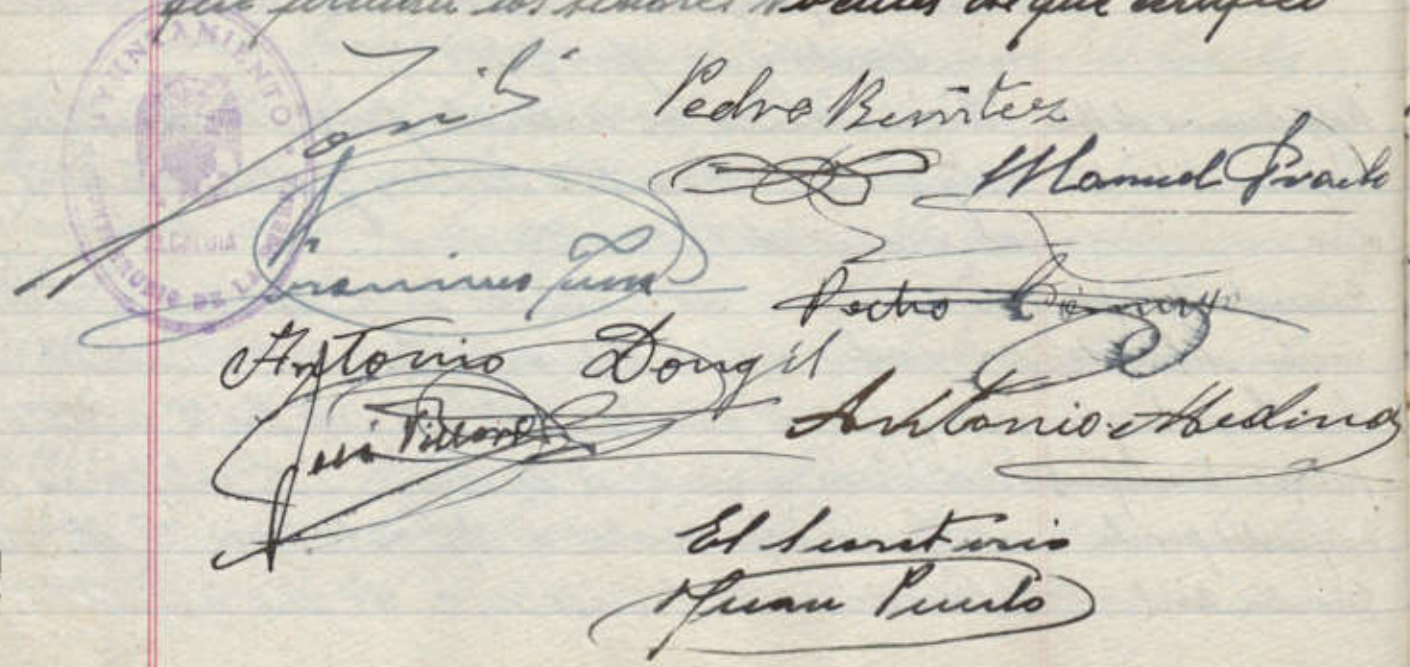 que firman los señores vocales de que certifico
AYUNTAMIENTO
ALCALDIA
DE LA
José
Pedro Benítez
Manuel Prado
Francisco
Pedro
Antonio Dongil
Luis
Antonio Medina
El Secretario
Juan Puerto